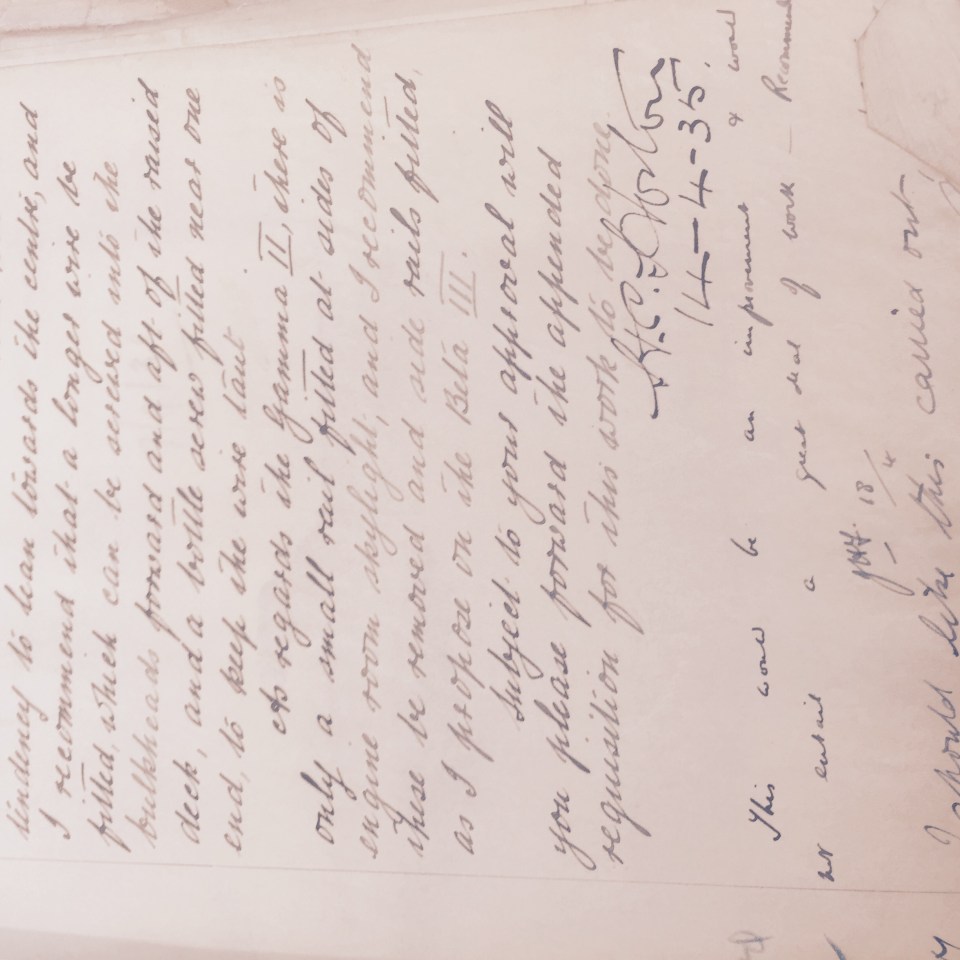 tendency to lean towards the centre, and
I recomend that a longer wire be
fitted, which can be secured into the
bulkheads forward and aft of the raised
deck, and a bottle screw fitted near one
end, to keep the wire taut
As regards the Gamma II, there is
only a small rail fitted at sides of
engine room skylight, and I recomend
these be removed and side rails fitted,
as I propose on the Beta III.
Subject to your approval will
you please forward the appended
requisition for this work to be done.
14-4-35.
This would be an improvement & would
not entail a great deal of work — Recommend
18/4
I should like this carried out